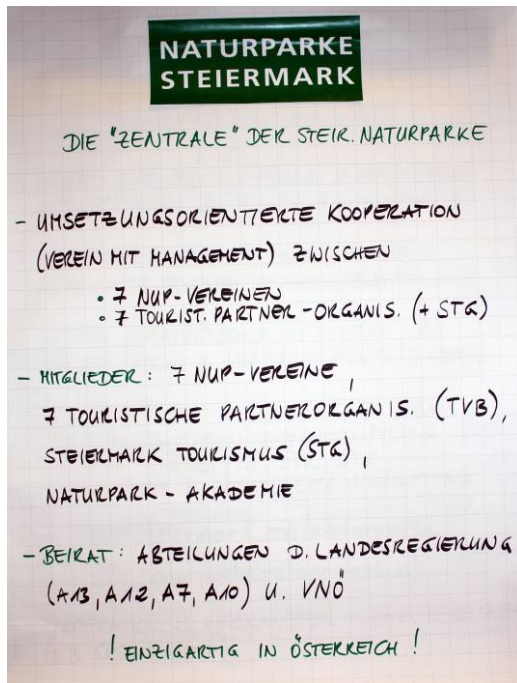 NATURPARKE
STEIERMARK
DIE "ZENTRALE" DER STEIR. NATURPARKE
- UMSETZUNGSORIENTIERTE KOOPERATION
(VEREIN MIT MANAGEMENT) ZWISCHEN
• 7 NUP-VEREINEN
• 7 TOURIST. PARTNER-ORGANIS. (+ STG)
- MITGLIEDER: 7 NUP-VEREINE,
7 TOURISTISCHE PARTNERORGANIS. (TVB),
STEIERMARK TOURISMUS (STG),
NATURPARK - AKADEMIE
- BEIRAT: ABTEILUNGEN D. LANDESREGIERUNG
(A13, A12, A7, A10) U. VNÖ
! EINZIGARTIG IN ÖSTERREICH !